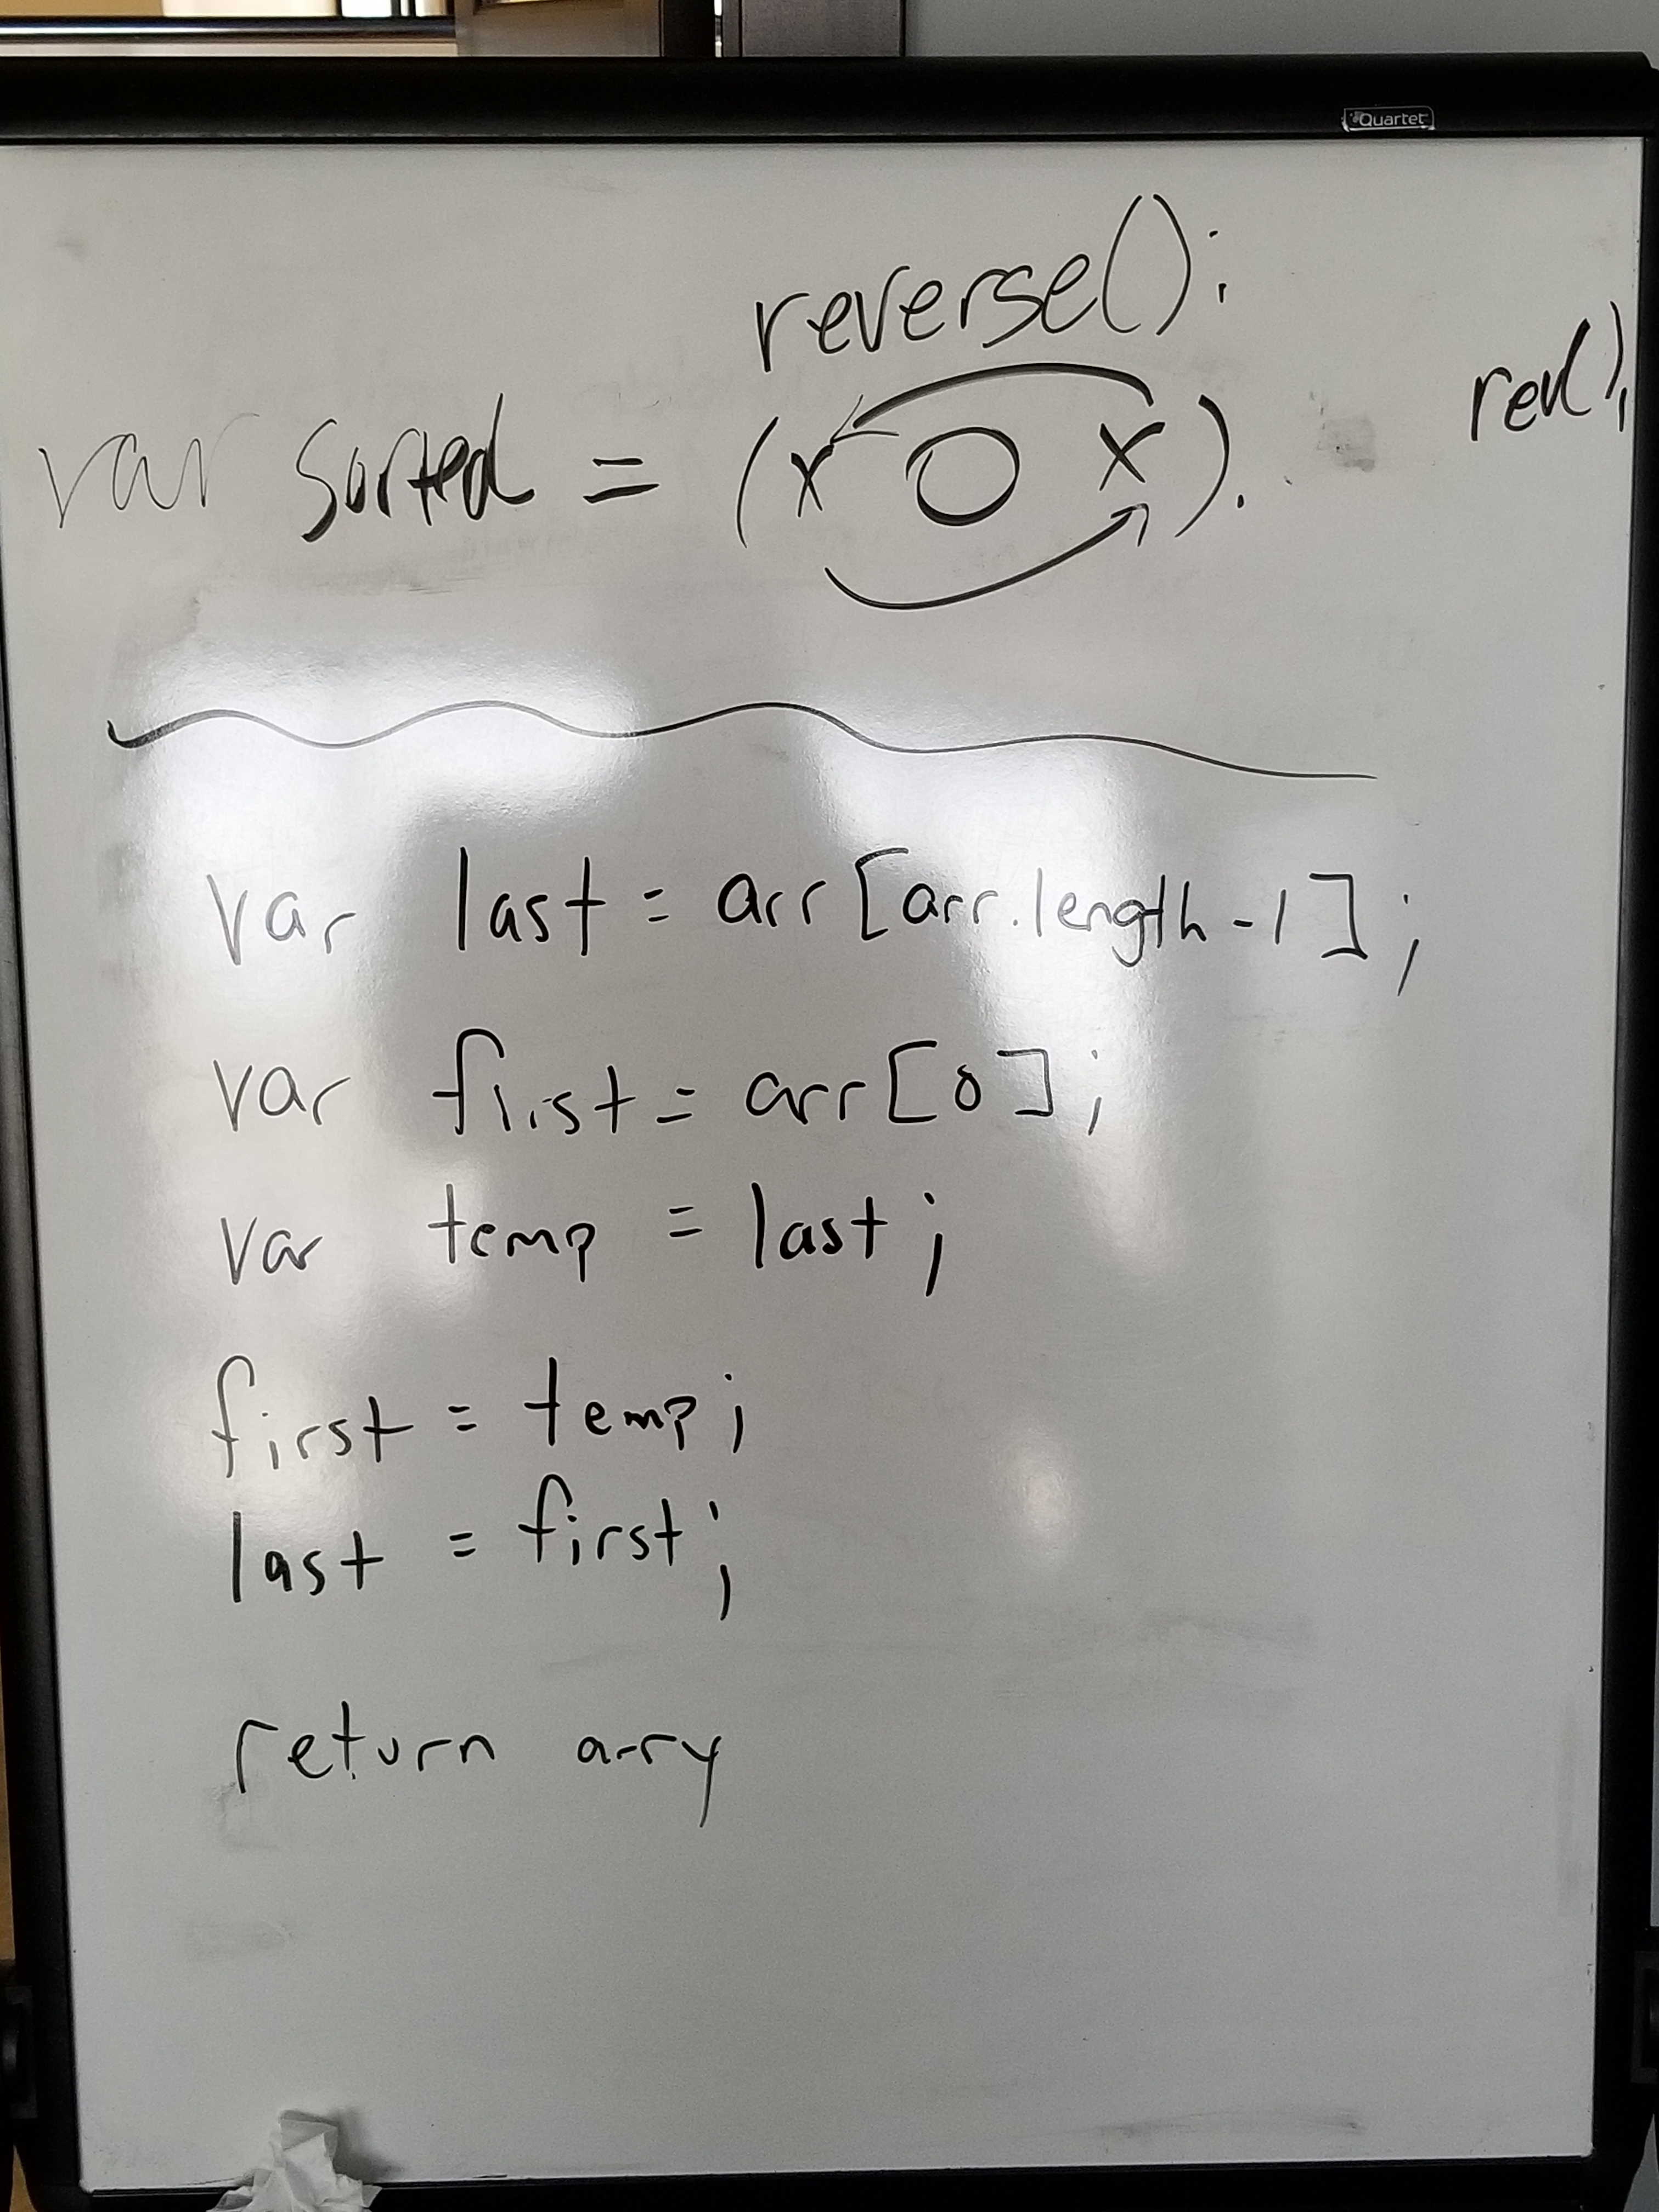 Quartet
reverse():
var sorted = (x O x).
rev();
var last = arr[arr.length-1];
var first = arr[0];
var temp = last;
first = temp;
last = first;
return arry